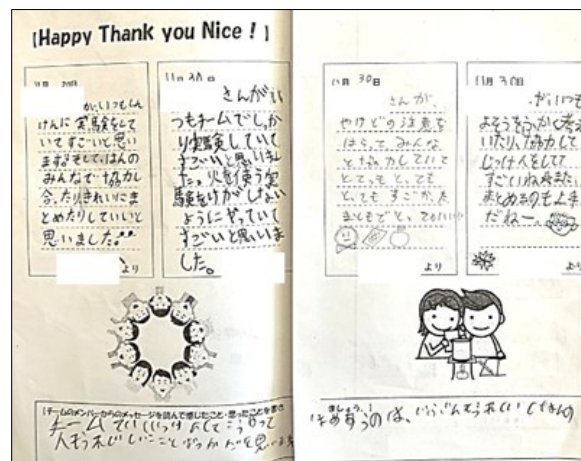 [Happy Thank you Nice!]
11月30日
が、いつもしん
けんに実験をして
いてすごいと思い
ます。そして、はんの
みんなで協力し
合ったりきれいにま
とめたりしていいと
思いました。
より
11月30日
さんがい
つもチームでしっか
り実験していて
すごいと思いまし
た。火を使う実
験をけがしない
ようにやっていて
すごいと思いま
した。
月30日
さんが、
やけどの注意を
はらって、みんな
と協力していて
とってもとっても
とってもすごかった
まとめもとっても
より
11月30日
が、いつも
よそうをふかく考
いたり、協力して
じっけんをして
すごいね。また、
まとめるのも上手
だねー。
より
チームのメンバーからのメッセージを読んで感じたこと・思ったことを書き
チームで